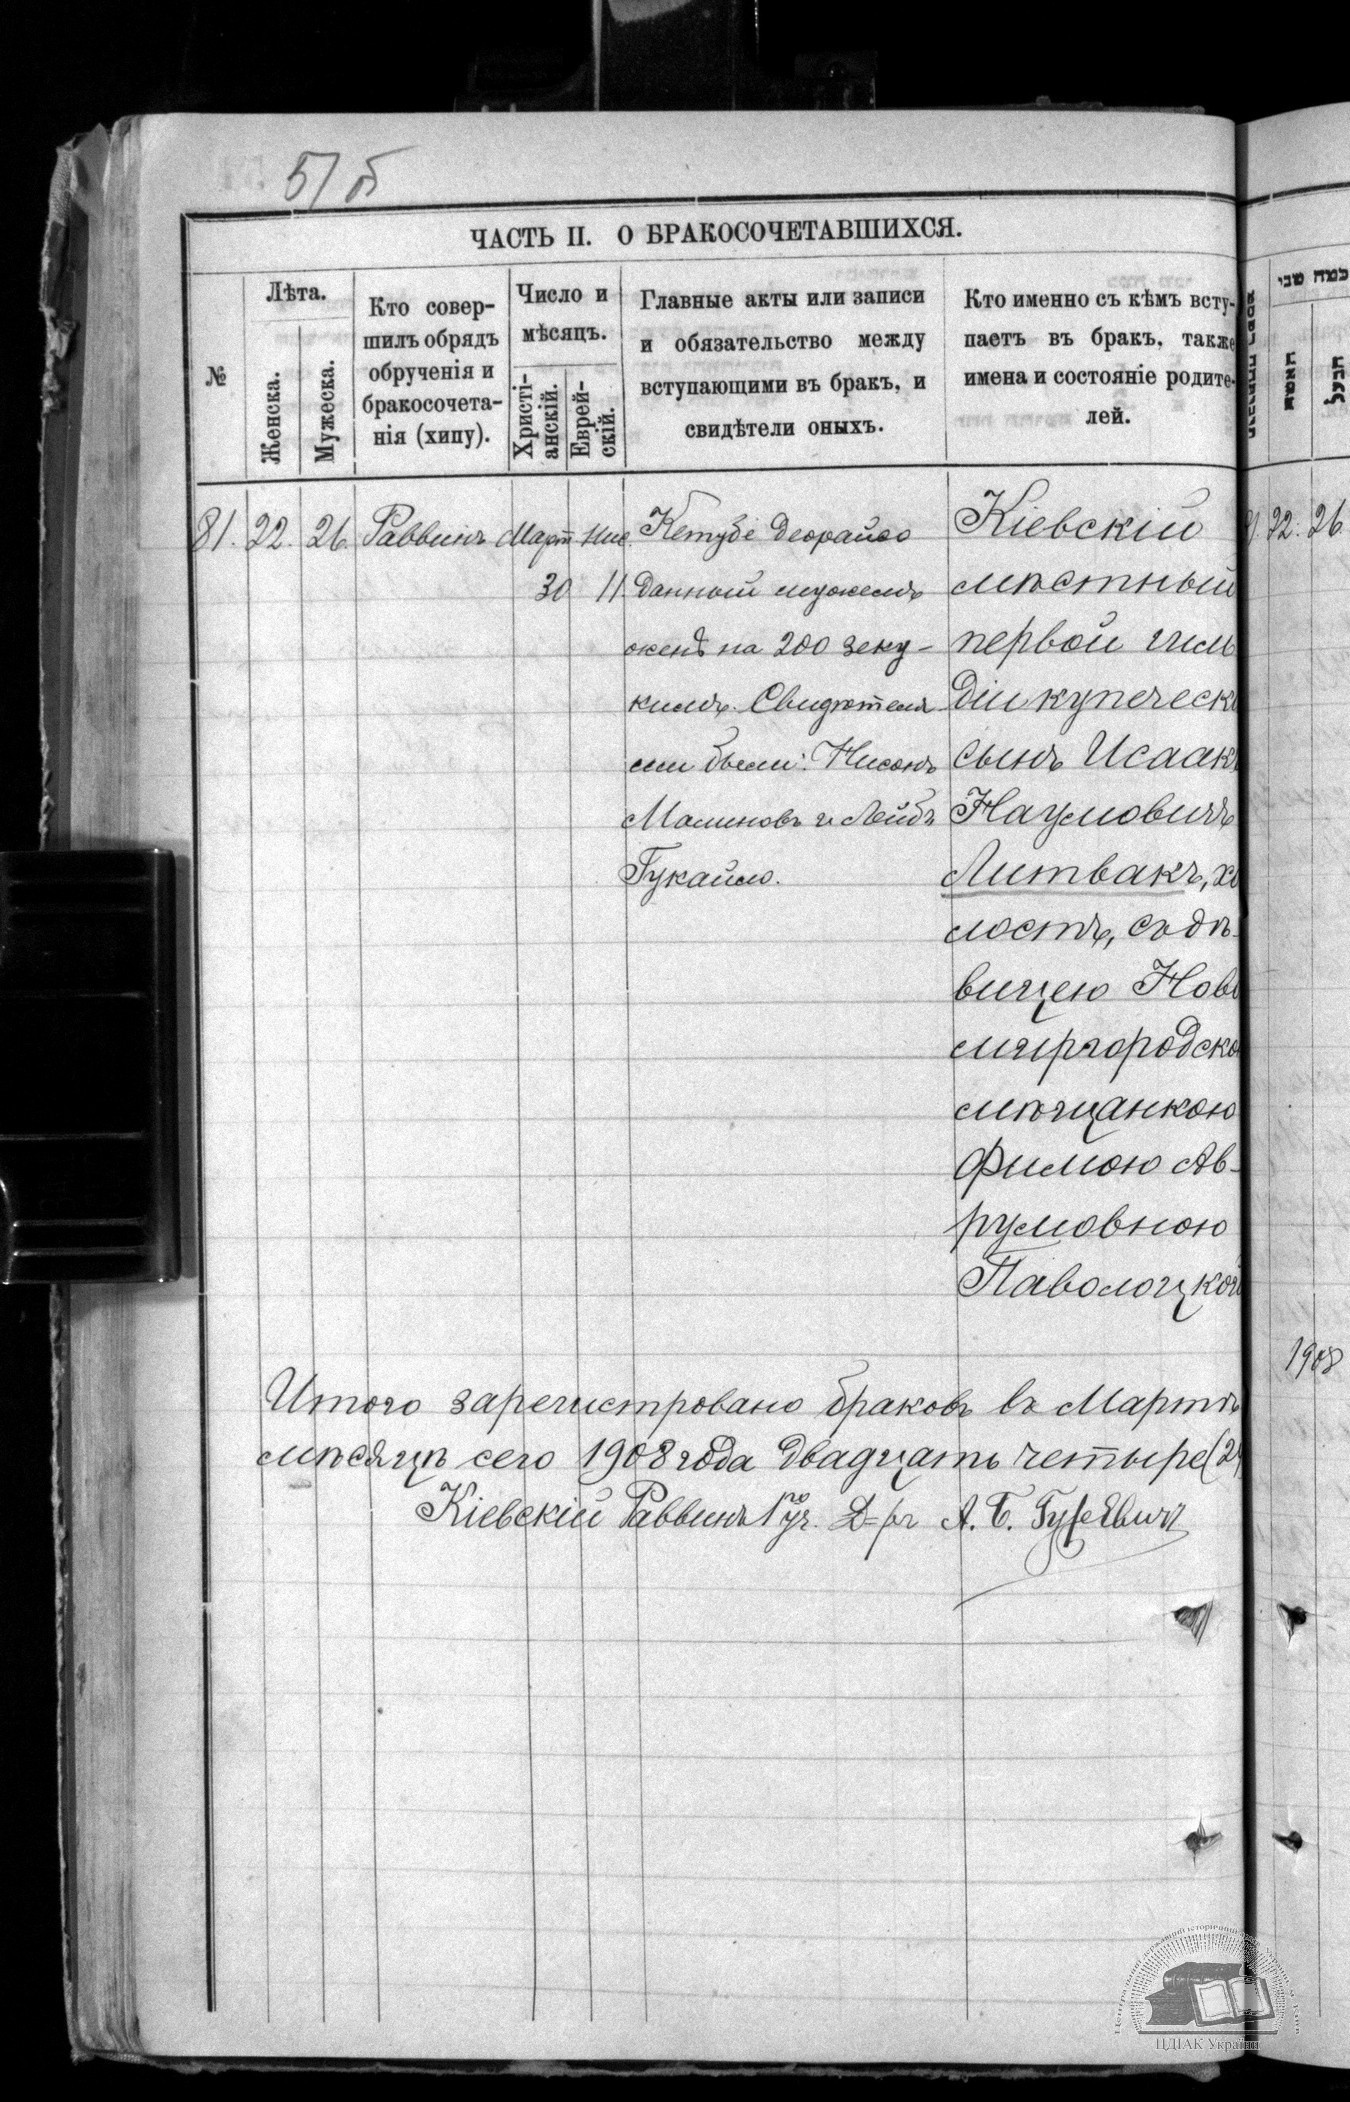 51 б
ЧАСТЬ II. О БРАКОСОЧЕТАВШИХСЯ.
№
Лѣта.
Женска.
Мужеска.
Кто совер-
шилъ обрядъ
обрученія и
бракосочета-
нія (хипу).
Число и
мѣсяцъ.
Христі-
анскій.
Еврей-
скій.
Главные акты или записи
и обязательство между
вступающими въ бракъ, и
свидѣтели оныхъ.
Кто именно съ кѣмъ всту-
паетъ въ бракъ, также
имена и состояніе родите-
лей.
81. 22. 26. Раввинъ Март Нис.
30 11.
Кетубе Деорайсо
данный мужемъ
женѣ на 200 зеку-
кимъ. Свидѣтеля-
ми были: Нисонъ
Малиновъ и Лейбъ
Гукайло.
Кіевскій
мѣстный
первой гиль
діи купеческ
сынъ Исаакъ
Наумовичъ
Литвакъ, хо
лостъ, съ дѣ-
вицею Ново
миргородско
мѣщанкою
Фимою Ав-
румовною
Паволоцкой
Итого зарегистровано браковъ въ Мартѣ
мѣсяцѣ сего 1908 года двадцать четыре (24
Кіевскій Раввинъ А. Б. Гуревичъ
כמה שני
האשה
הבעל
22. 26.
1908
ЦДІАК України